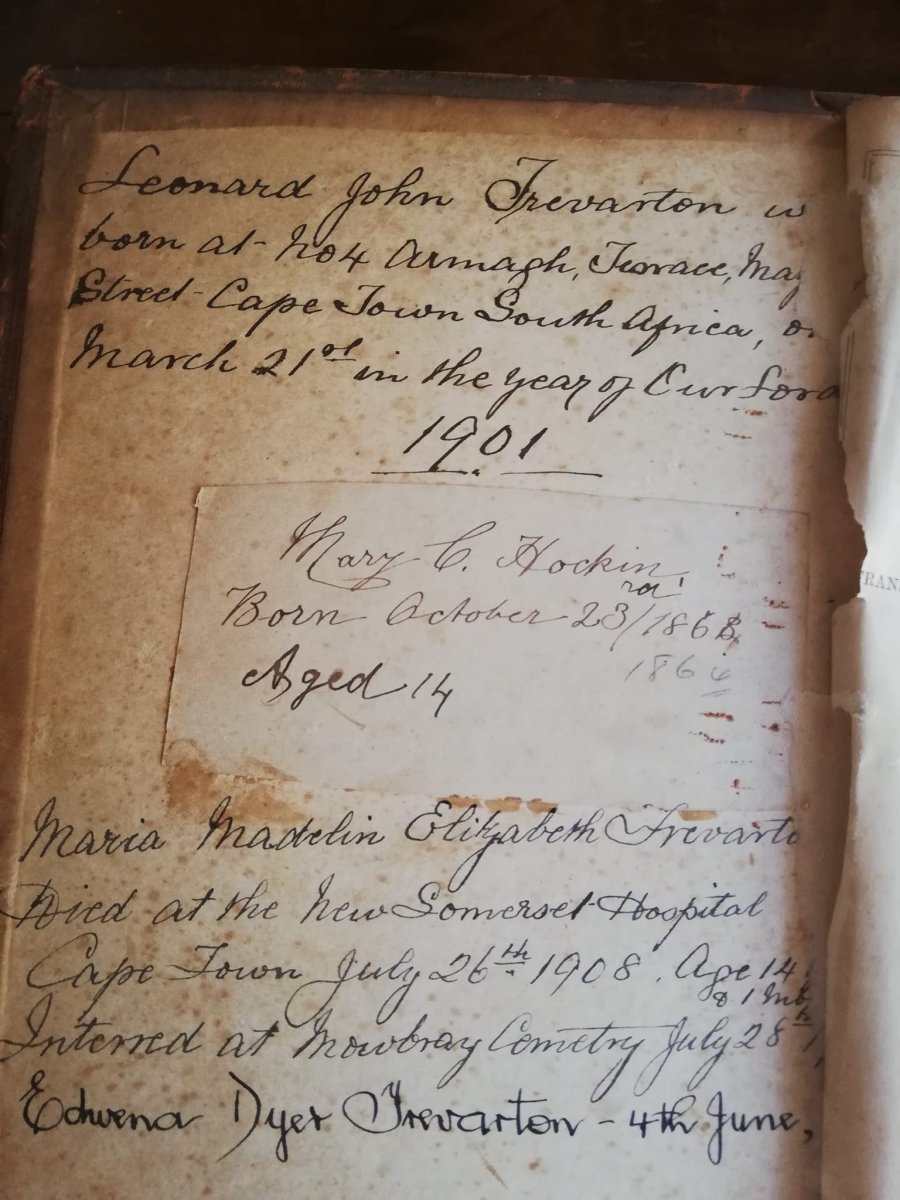 Leonard John Trevarton w
born at No 4 Armagh, Terrace, May
Street Cape Town South Africa, on
March 21st in the year of Our Lord
1901
Mary C. Hockin
Born October 23rd/186
1864
Aged 14
Maria Madelin Elizabeth Trevarto
Died at the New Somerset Hospital
Cape Town July 26th 1908. Age 14
& 1 Mth
Interred at Mowbray Cemetry July 28th
Edwena Dyer Trevarton - 4th June,
FRAN